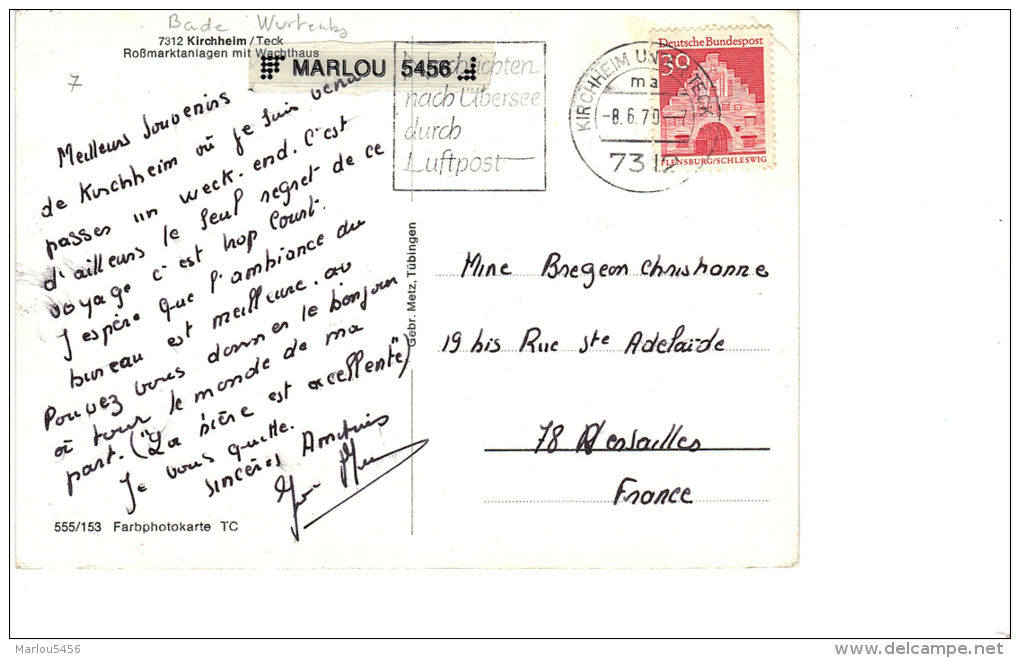 Bade Wurtenbg
7312 Kirchheim/Teck
Roßmarktanlagen mit Wachthaus
MARLOU 5456
7
nach Übersee
durch
Luftpost
KIRCHHEIM UNTER TECK
ma
-8.6.70-7
7312
Deutsche Bundespost
30
FLENSBURG/SCHLESWIG
Meilleurs Souvenirs
de Kirchheim où je suis venu
passer un week-end. C'est
d'ailleurs le seul regret de ce
voyage c'est trop court.
J'espère que l'ambiance du
bureau est meilleure. au
Pouvez vous donner le bonjour
à tour le monde de ma
part. ("La bière est excellente")
Je vous quitte.
sincères Amitiés
Gebr. Metz, Tübingen
Mme Bregeon Christianne
19 bis Rue Ste Adelaïde
78 Versailles
France
555/153 Farbphotokarte TC
Marlou5456
www.delcampe.net